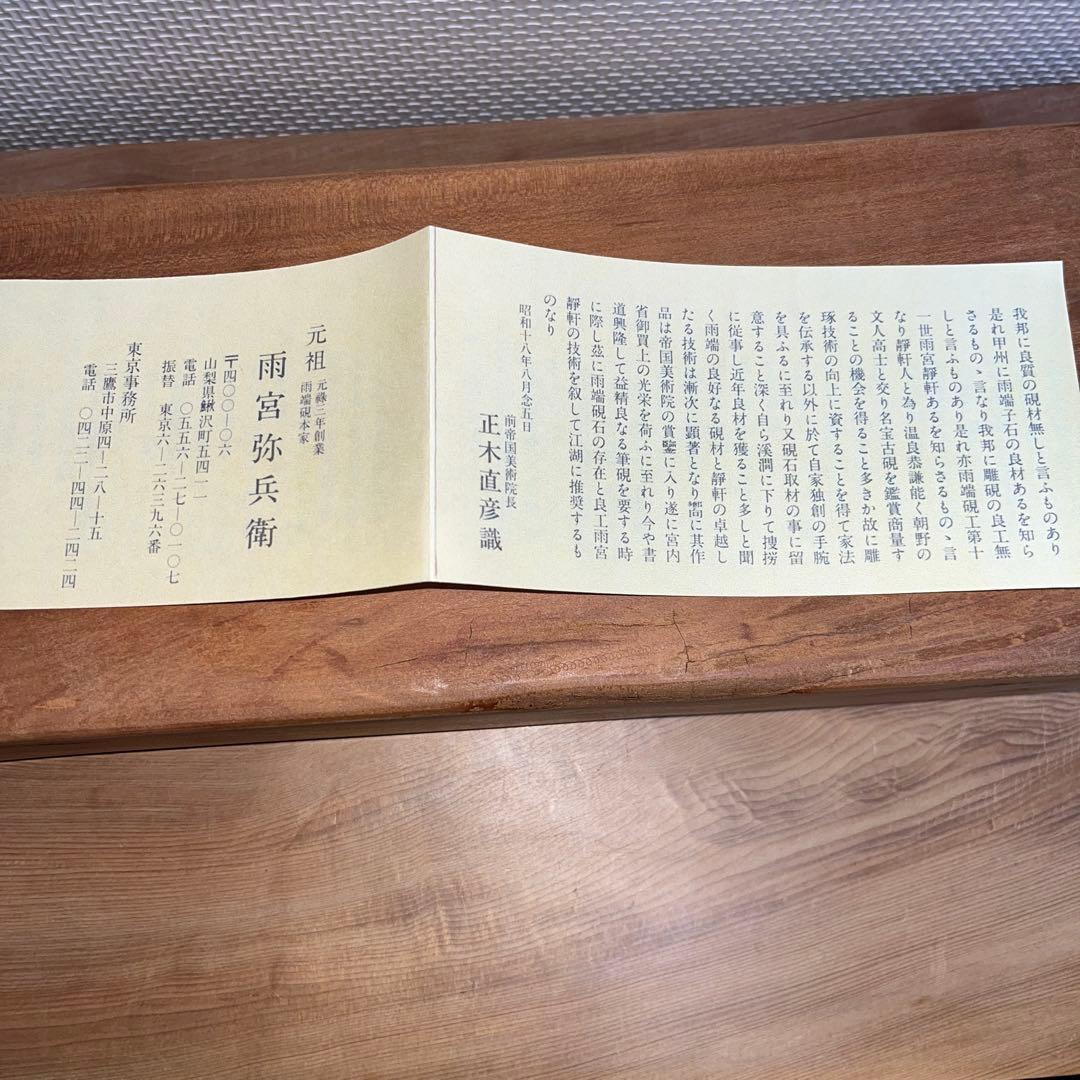 我邦に良質の硯材無しと言ふものあり
是れ甲州に雨端子石の良材あるを知ら
さるものゝ言なり我邦に雕硯の良工無
しと言ふものあり是れ亦雨端硯工第十
一世雨宮靜軒あるを知らさるものゝ言
なり靜軒人と為り温良恭謙能く朝野の
文人高士と交り名宝古硯を鑑賞商量す
ることの機会を得ること多きか故に雕
琢技術の向上に資することを得て家法
を伝承する以外に於て自家独創の手腕
を具ふるに至れり又硯石取材の事に留
意すること深く自ら渓澗に下りて捜拐
に従事し近年良材を獲ること多しと聞
く雨端の良好なる硯材と靜軒の卓越し
たる技術は漸次に顕著となり嚮に其作
品は帝国美術院の賞鑒に入り遂に宮内
省御買上の光栄を荷ふに至れり今や書
道興隆して益精良なる筆硯を要する時
に際し玆に雨端硯石の存在と良工雨宮
靜軒の技術を叙して江湖に推奨するも
のなり
昭和十八年八月念五日
前帝国美術院長
正木直彦識
元祖 元祿三年創業
雨端硯本家
雨宮弥兵衛
〒四〇〇—〇六
山梨県鰍沢町五四一一
電話 〇五五六—二七—〇一〇七
振替 東京六—二六三九六番
東京事務所
三鷹市中原四—二八—十五
電話 〇四二二—四四—二四二四